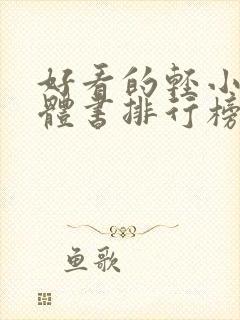 好看的轻小
體書排行榜
鱼歌